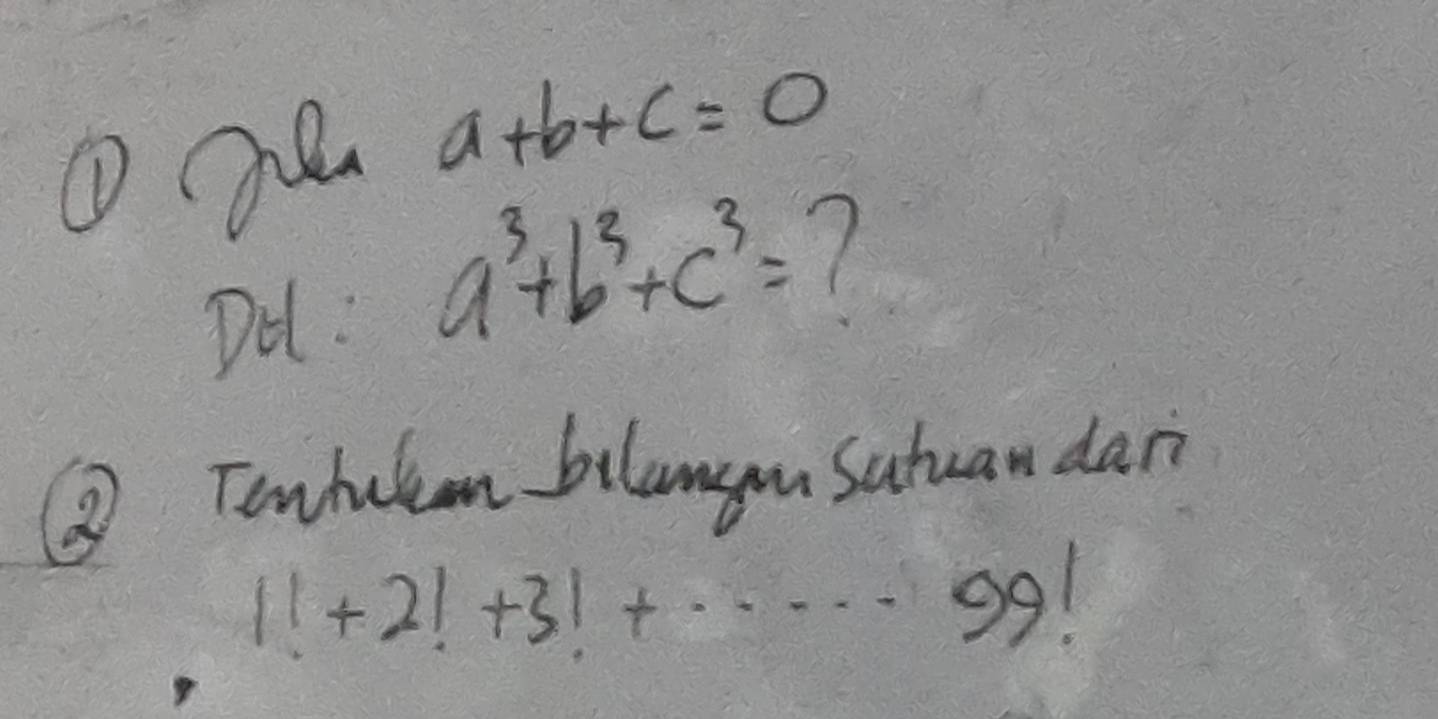 ① Jika a+b+c= 0
Dit : a³+b³+c³=?
② Tentukan bilangan satuan dari
1! + 2! +3! + ...... 99!